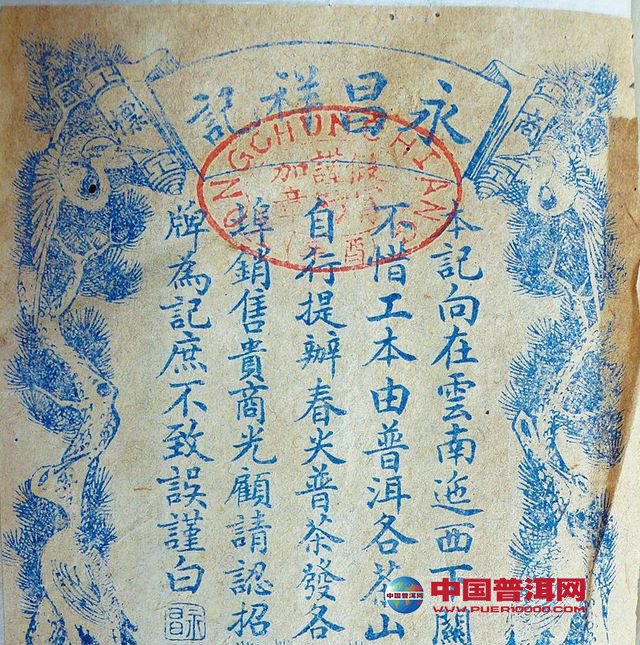 商標
永昌祥記
本記向在雲南迤西下關
不惜工本由普洱各茶山
自行提辦春尖普茶發各
埠銷售貴商光顧請認招
牌為記庶不致誤謹白
永昌
中国普洱网
WWW.PUER10000.COM